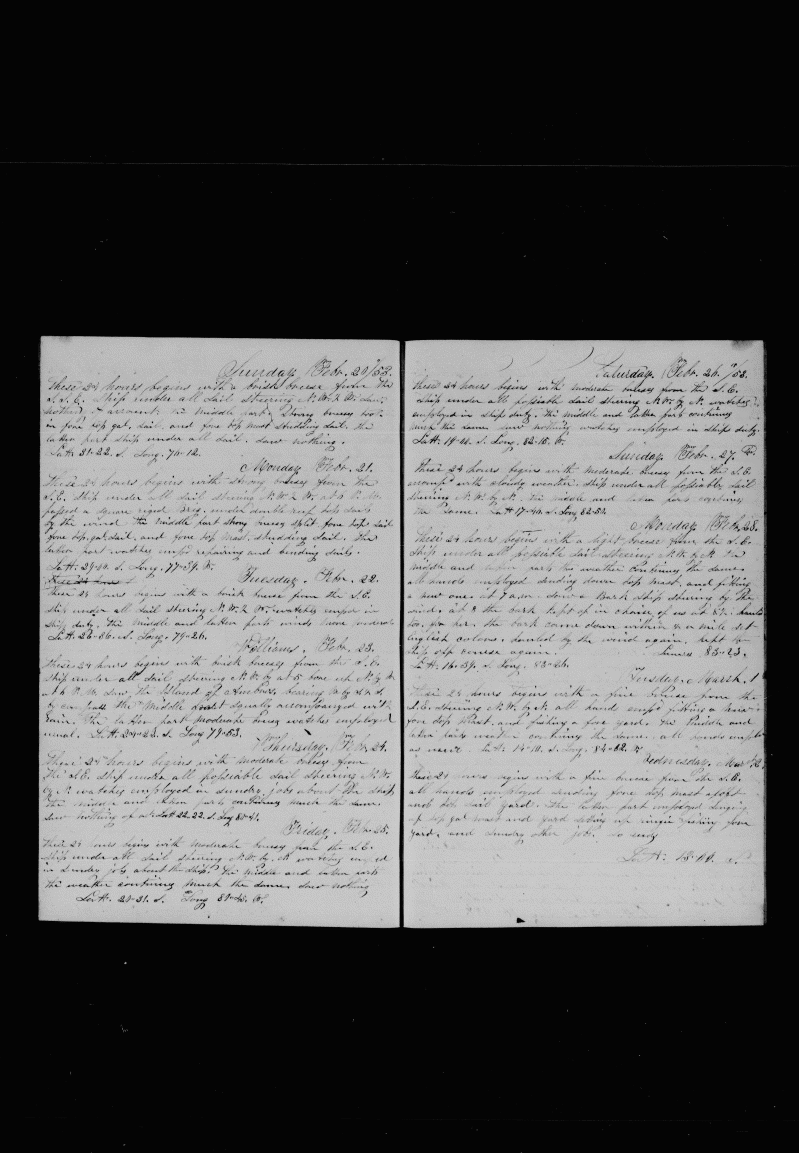 Sunday Febr. 20/53.
These 24 hours begins with a brisk breese from the
S.S.E. Ship under all sail steering N.W. & W. saw
nothing. middle part strong breeses took
in fore top gal. sail, and fore top mast studding sail. the
latter part ship under all sail. saw nothing.
Latt. 31-22. S. Long. 70-12.
Monday Febr. 21.
These 24 hours begins with strong breeses from the
S.E. ship under all sail steering N.W. & W. at P.M.
passed a square riged Brig. under double reef top sails
by the wind. the middle part strong breesy split fore top sail
fore top gal. sail, and fore top mast. studding sail. the
latter part watches empd repairing and bending sails.
Latt. 29-10. S. Long. 77-59. W.
These 24 hours
Tuesday. Febr. 22.
These 24 hours begins with a brisk breese from the S.E.
ship under all sail steering N.W. & W. watches empd in
ship duty. the middle and latter parts winds more moderate
Latt. 26-26. S. Long. 79-26.
Febr. 23.
These 24 hours begins with brisk breeses from the S.E.
ship under all sail steering N.W. by at 5 N. by W.
at 6 P.M. saw the Island of St Ambors. bearing
by compass the Middle part squally accompanyed with
rain. the latter part moderate breesy watches employed
usual. Latt. 24-23. S. Long 79-53.
Thursday. Febr. 24.
These 24 hours begins with moderate breeses from
the S.E. ship under all possiable sail steering N.W.
by N. watches employed in sundry jobs about the ship
the middle and latter parts continues much the same
saw nothing Latt 22.22. S. Long 80-41.
Friday. Febr. 25.
These 24 ours begins with moderate breesy from the S.E.
ship under all sail steering N.W. by N. watches
in sunder jobs about the ship. the Middle and latter parts
the weather continues much the same. saw nothing
Latt. 20-31. S. Long 81-45. W.
Saturday. Febr. 26. /53.
These 24 hours begins with moderate breeses from the S.E.
ship under all possiable sail steering N.W. by N. watches
employed in ship duty. the middle and latter part continues
much the same. saw nothing watches employed in ships duty.
Latt. 19-02. S. Long. 82-15. W.
Sunday Febr. 27.
These 24 hours begins with moderade breeses from the S.E.
with cloudy weather. ship under all possiable sail
steering N.W. by N. the middle and latter parts continues
the same. Latt 17-40. S. Long 82-54.
Monday Feb. 28.
These 24 hours begins with a light breese from the S.E.
ship under all possible sail steering N.W. by N. the
middle and latter parts the weather continues the same.
all hands employed sending down top mast, and fitting
a new one. at 7 a.m. saw a Bark ship steering by the
wind. at 8 the bark kept of in chaise of us at 8½ hauled
too, for her. the bark come down within a mile set
english colours, hauled by the wind again, kept to
ship off course again. Lunars 83-23.
Latt. 16-39. S. Long. 83-26.
Tuesday. March. 1
These 24 hours begins with a fine breese from the
S.E. steering N.W. by N. all hands empd fitting a new
fore top Mast. and fixing a fore yard. the Middle and
latter parts weather continues the same. all hands employed
as usual. Latt. 14-10. S. Long. 84-02. W.
Wednesday. Mar. 2.
These 24 ours begins with a fine breese from the S.E.
all hands employed sending fore top mast aloft
and top sail yard. the latter part employed
up top gal mast and yard setting up riggin fixing fore
yard, and sundry other jobs. so ends
Latt. 13-00. S.